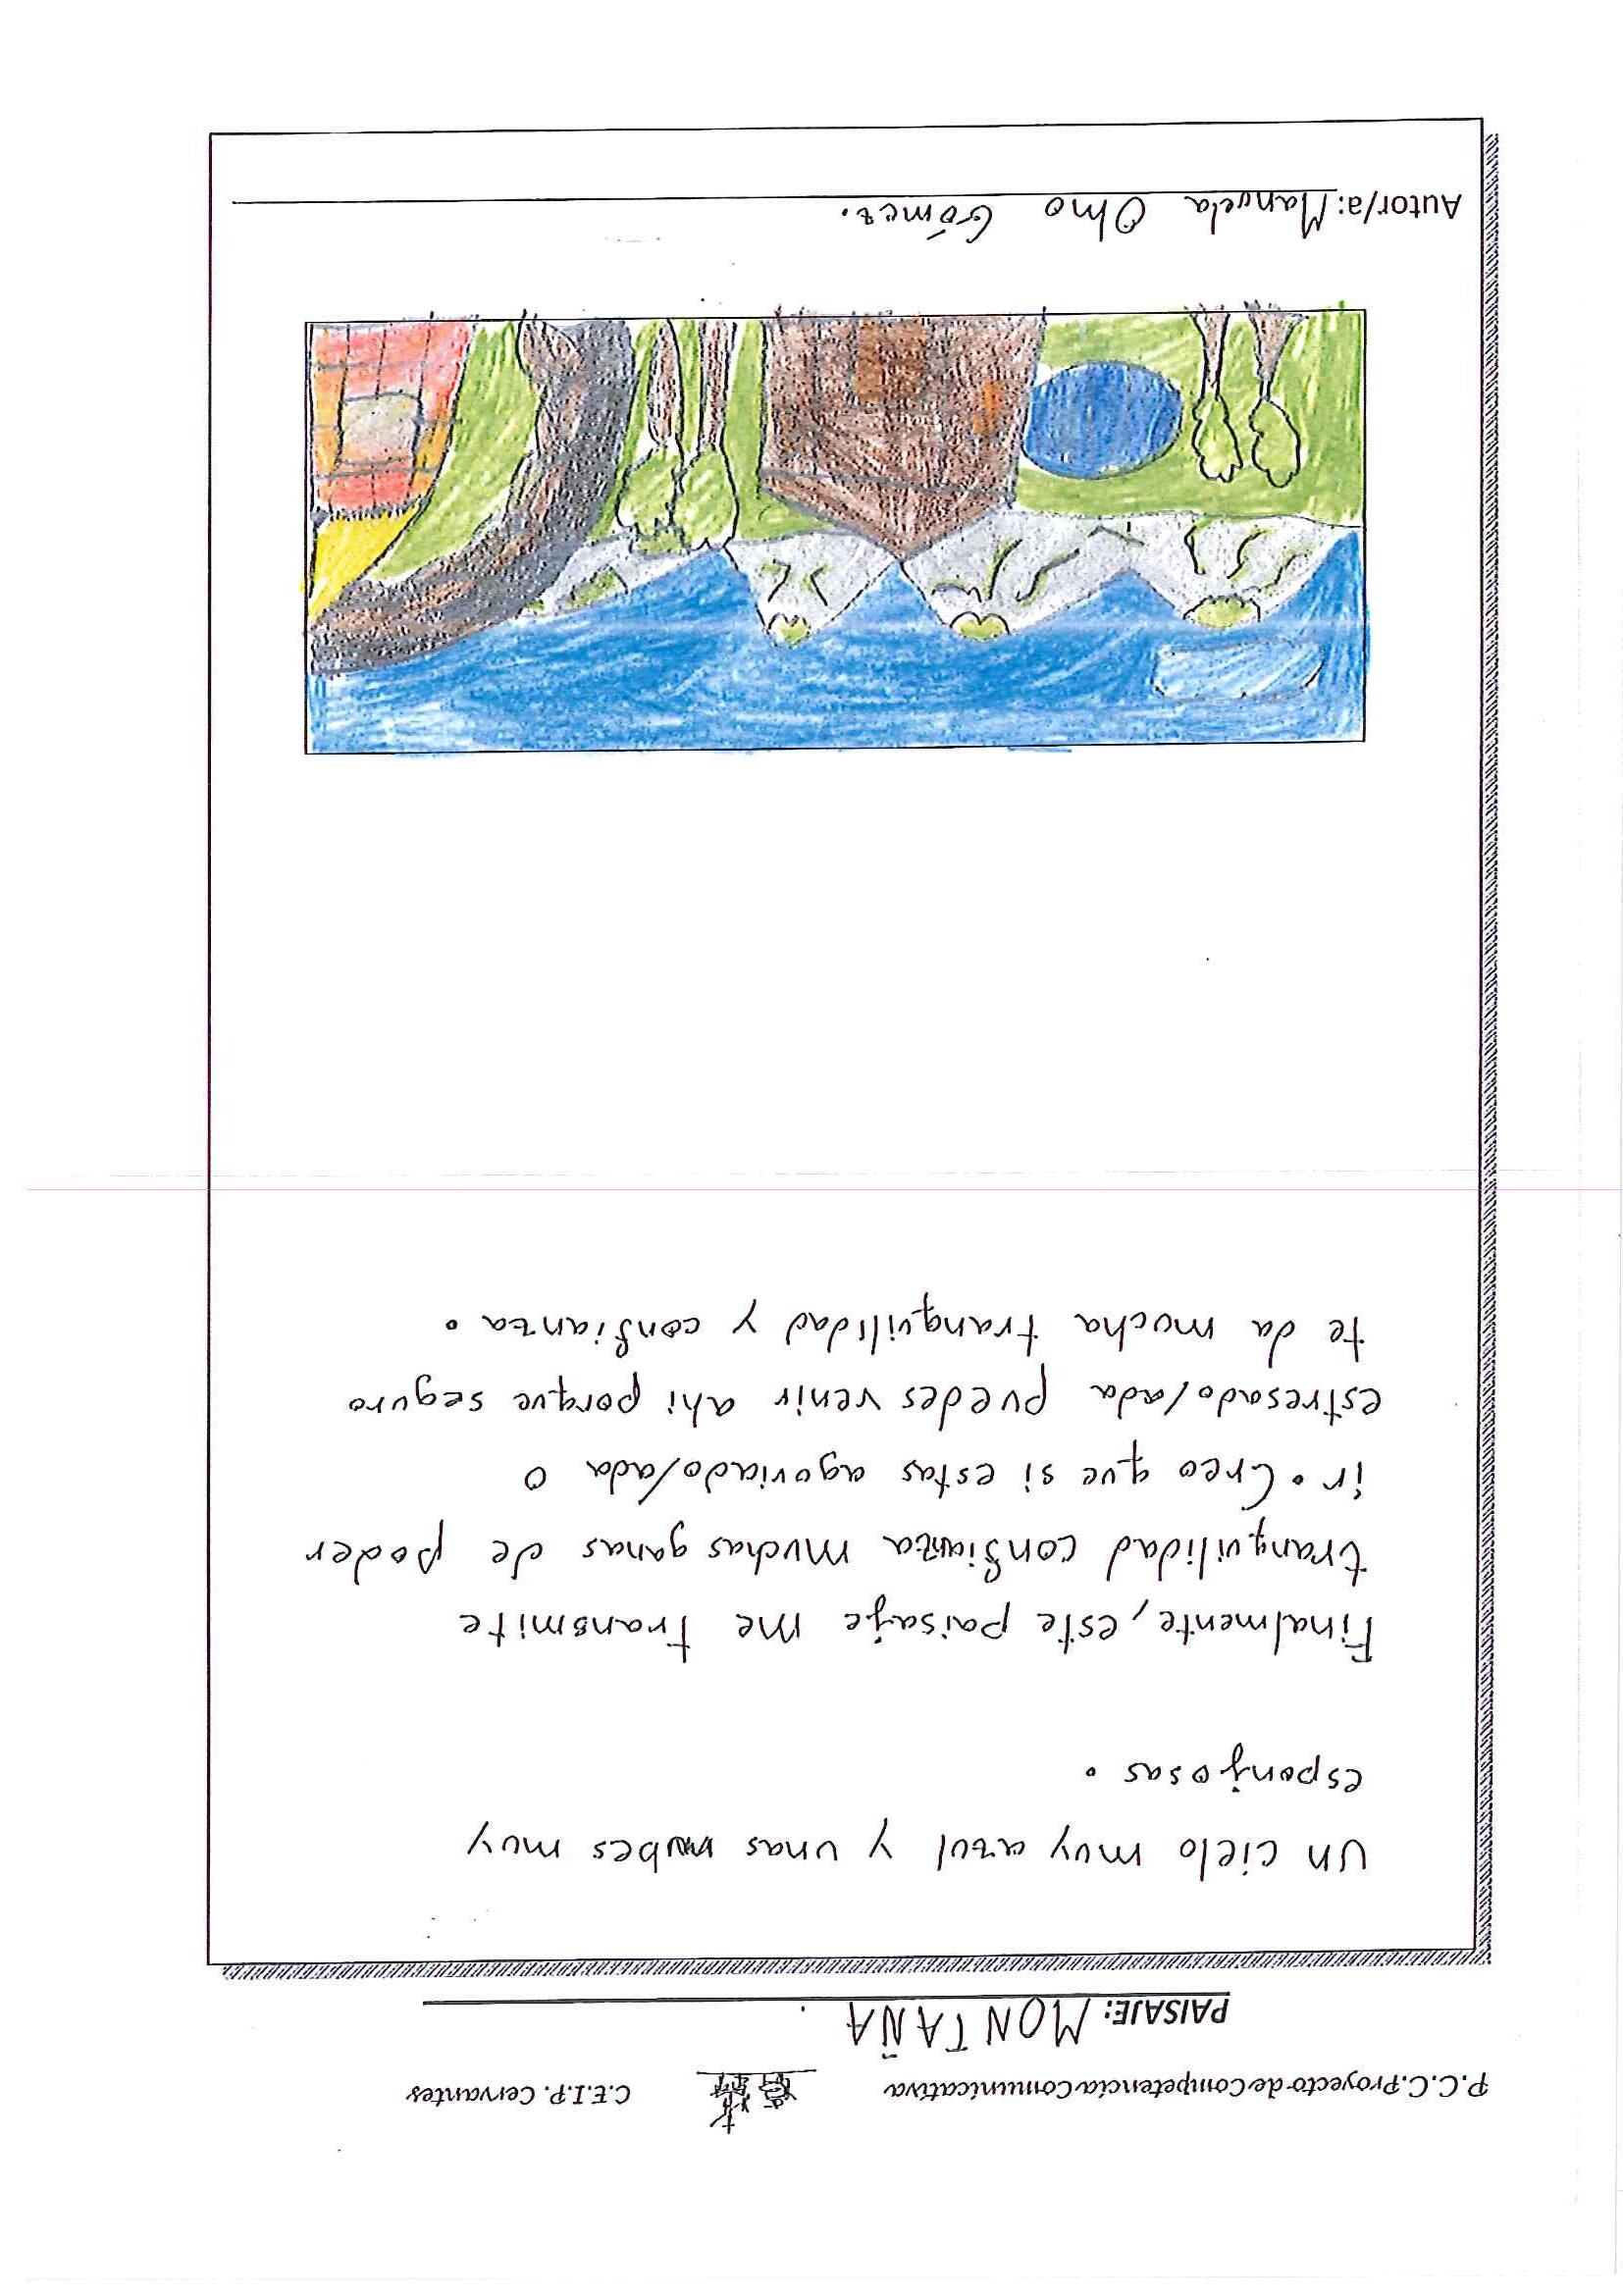 P.C.C. Proyecto de Competencia Comunicativa C.E.I.P. Cervantes
PAISAJE: MONTAÑA.
un cielo muy azul y unas nubes muy
esponjosas.
Finalmente, este paisaje me transmite
tranquilidad confianza muchas ganas de poder
ir. Creo que si estas agoviado/ada o
estresado/ada puedes venir ahi porque seguro
te da mucha tranquilidad y confianza.
Autor/a: Manuela Olmo Gómez.